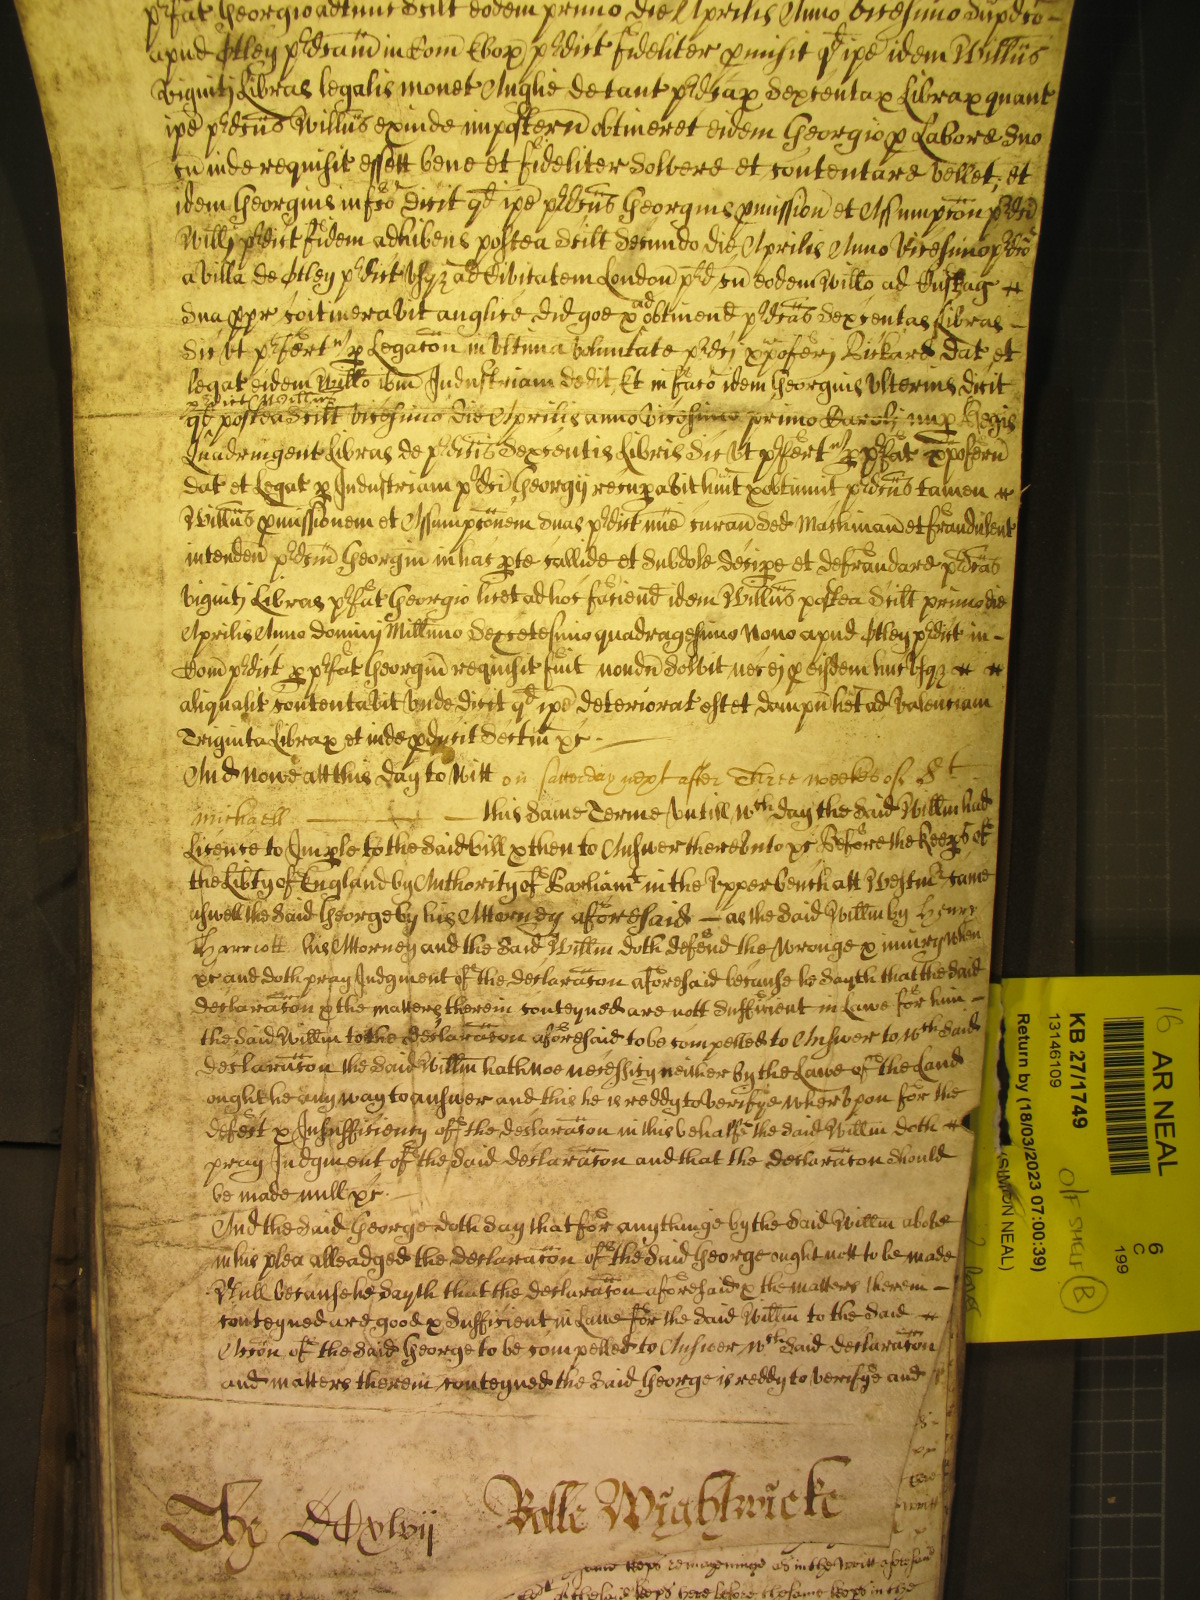 p'fat Georgio adtunc scilt eodem primo die Aprilis Anno vicesimo supdco -
apud Otley p'dcam in Com Ebor p'dict fideliter pmisit qd ipe idem Willus
viginti Libras legalis monet Anglie de tant p'dcar sexcentar Librar quant
ipe p'dcus Willus exinde imposteru obtineret eidem Georgio p Labore suo
cu inde requisit essett bene et fideliter solvere et contentare vellet, et
idem Georgius in fco dicit qd ipe p'dcus Georgius pmission et Assumpcon p'dci
Willi p'dict fidem adhibens postea scilt secundo die Aprilis Anno vicesimo p'dco
a villa de Otley p'dict usqz ad Civitatem London p'd cu eodem Willo ad Custag
sua ppr coitineravit anglice did goe x ad obtinend p'dcas sexcentas Libras -
sic ut p'fert p Legacon in ultima voluntate p'dci xpoferi Rickard dat et
legat eidem Willo ibm Industriam dedit, Et in facto idem Georgius ulterius dicit
p'dict Willus
qd postea scilt vicesimo die Aprilis anno vicesimo primo Caroli nup Regis
Quadringent Libras de p'dcis sexcentis Libris sic ut p'fert p p'fat xpoferu
dat et Legat p Industriam p'dci Georgij recuperavit huit x obtinuit p'dcus tamen
Willus pmissionem et Assumpconem suas p'dict mie curan sed Machinan et fraudulent
intenden p'dcum Georgiu in hac pte callide et subdole decipe et defraudare p'dcas
viginti Libras p'fat Georgio licet ad hoc faciend idem Willus postea scilt primo die
Aprilis Anno domini Millimo sexcetesimo quadragesimo Nono apud Otley p'dict in -
Com p'dict p p'fat Georgiu requisit fuit nondu solvit nec ei p eisdem huc usqz
aliqualit contentavit unde dicit qd ipe deteriorat est et dampn het ad valenciam
Triginta Librar et inde pducit sectam xc -
And nowe att this day to witt on satterday next after Three weekes of St
Michaell this same Terme untill wch day the said Willm had
License to Imple to the said bill x then to Answer thereunto xc Before the Keeps of
the Libty of England by Authority of Parliamt in the Upper bench att Westmr came
aswell the said George by his Attorney aforesaid - as the said Willm by Henry
Harriott his Attorney and the said Willm doth defend the wronge x iniury when
xc and doth pray Judgment of the declaracon aforesaid because he sayth that the said
declaracon x the matters therein conteyned are nott sufficient in Lawe for him -
the said Willm to the declaracon aforesaid to be compelled to Answer to wch said
declaracon the said Willm hath noe necessity neither by the Lawe of the Land
ought he any way to answer and this he is reddy to verifye wherupon for the
defect x Insufficiency of the declaracon in this behalfe the said Willm doth
pray Judgment of the said declaracon and that the declaracon should
be made null xc -
And the said George doth say that for anythinge by the said Willm above
in his plea alleadged the declaracon of the said George ought nott to be made
Null because he sayth that the declaracon aforesaid x the matters therein -
conteyned are good x sufficient in Lawe for the said Willm to the said
Accon of the said George to be compelled to Answer, wch said declaracon
and matters therein conteyned the said George is reddy to verifye and
Rolle Wightwicke
same Keps remayninge as in the writt aforesaid
here before the same Keps in the
16
AR NEAL
6
C
199
KB 27/1749
13146109
Return by (18/03/2023 07:00:39)
(SIMON NEAL)
O/F SHELF B